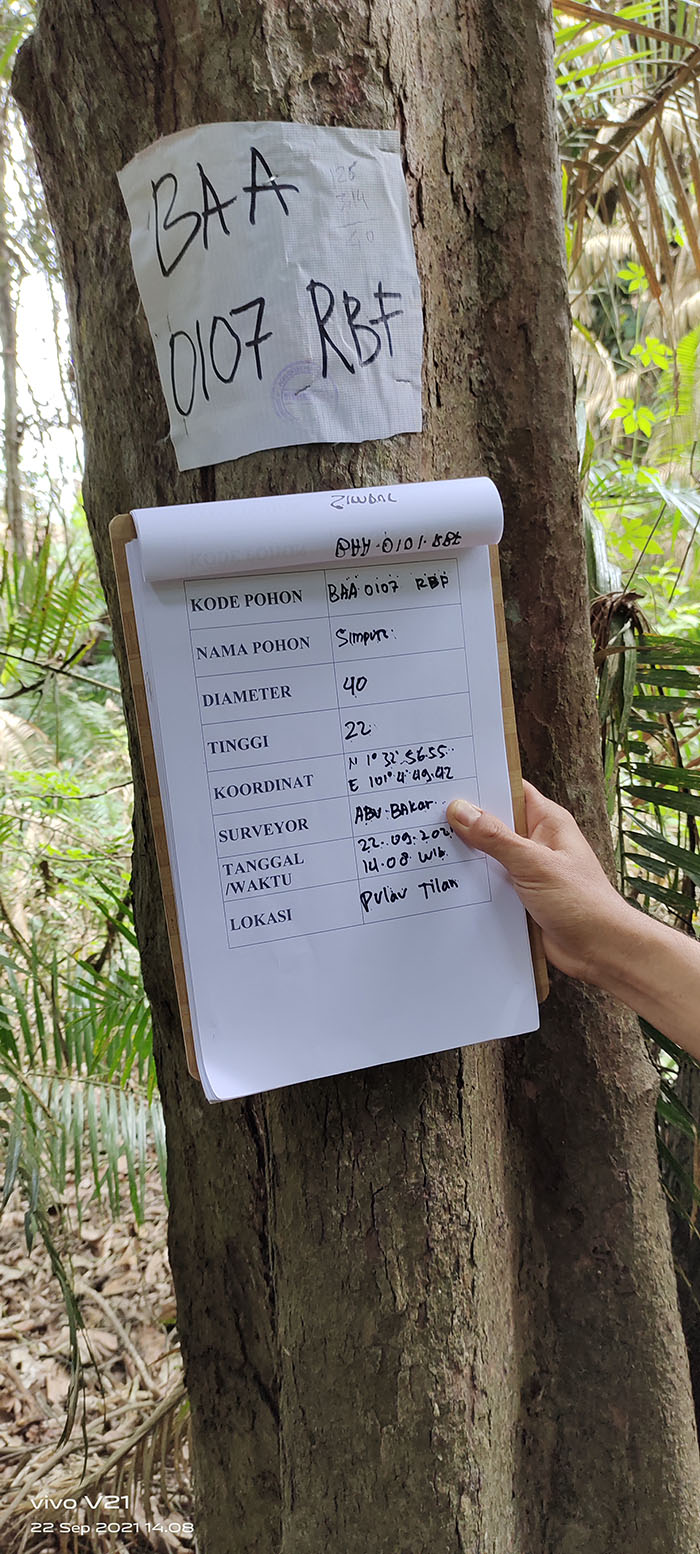 BAA
126
314
40
0107 RBF
KODE POHON BAA 0107 RBF
NAMA POHON Simpur
DIAMETER 40
TINGGI 22
KOORDINAT N 1° 32' 56.55
E 101° 4' 49.42
SURVEYOR ABU BAKAR
TANGGAL 22.09.202
/WAKTU 14.08 WIB
LOKASI PULAU TILAN
vivo V21
22 Sep 2021 14.08